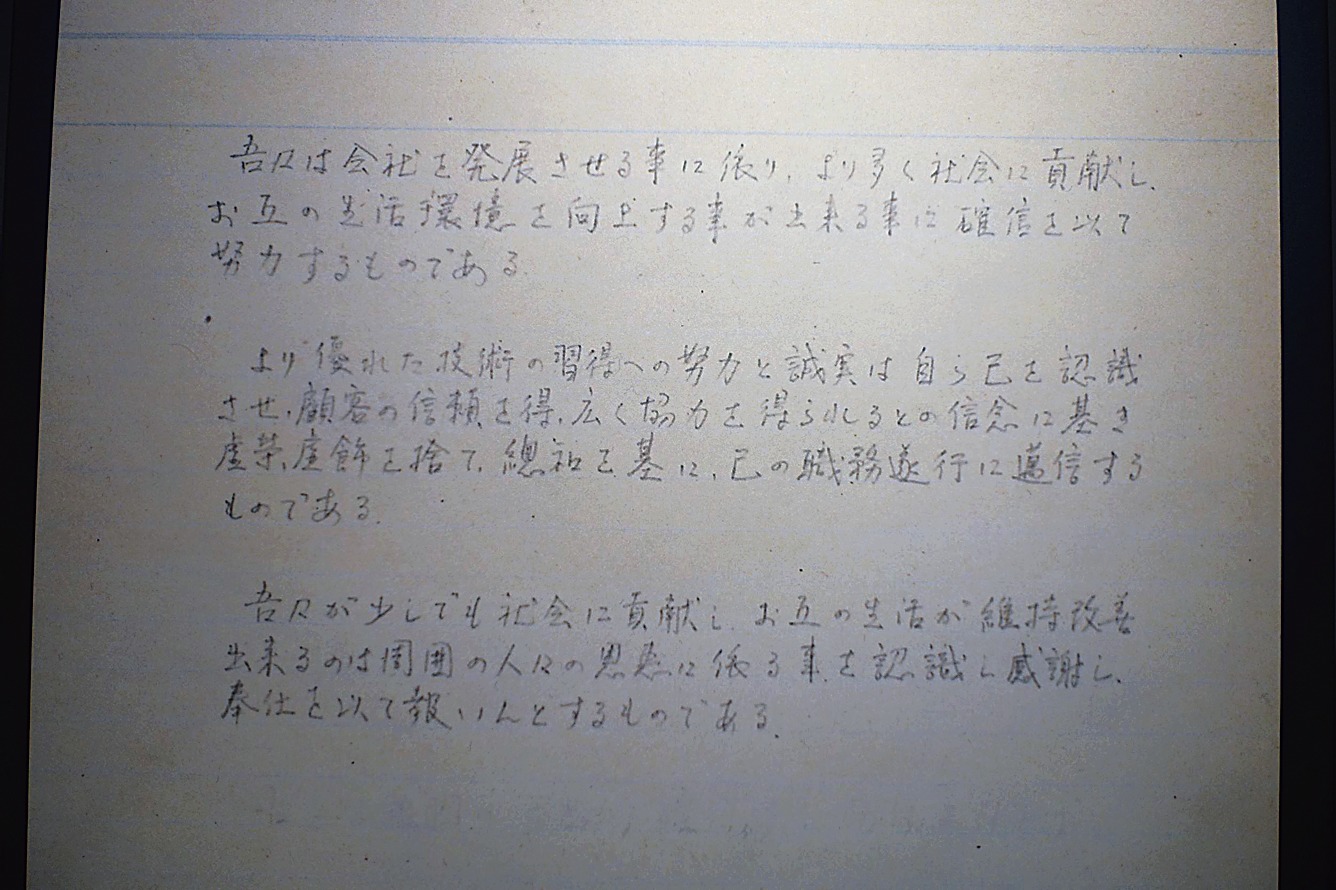 吾々は会社を発展させる事に依り、より多く社会に貢献し、
お互の生活環境を向上する事が出来る事に確信を以て
努力するものである。
より優れた技術の習得への努力と誠実は自ら己を認識
させ、顧客の信頼を得、広く協力を得られるとの信念に基き
虚栄、虚飾を捨て、總和を基に、己の職務遂行に邁信する
ものである。
吾々が少しでも社会に貢献し、お互の生活が維持改善
出来るのは周囲の人々の恩恵に依る事を認識し感謝し、
奉仕を以て報いんとするものである。